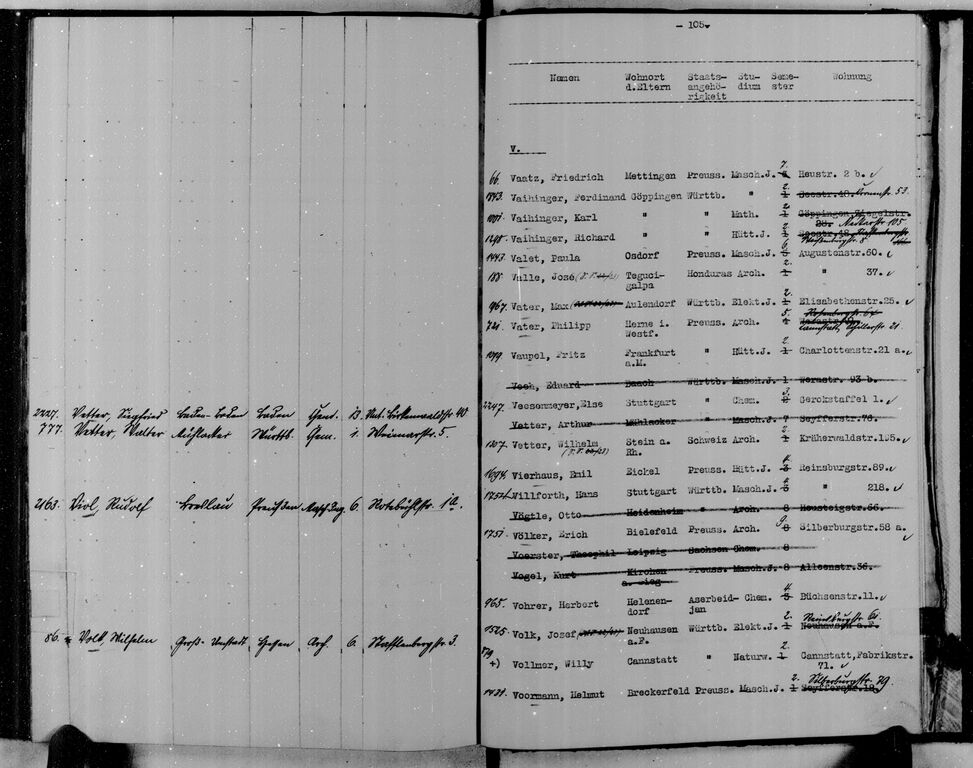 2227. Vetter, Siegfried Baden-Baden Baden Chem. 2. Birkenwaldstr 40
777. Vetter, Walter Mühlacker Württb. Chem. 1. Weimarstr. 5.
2163. Viol, Rudolf Breslau Preußen Masch.Ing. 6. Rotebühlstr. 1a.
86. Volk, Wilhelm Groß-Umstadt Hessen Arch. 6. Stafflenbergstr. 3.
- 105.
Namen Wohnort d.Eltern Staats-angehö-rigkeit Stu-dium Seme-ster Wohnung
V.
66. Vaatz, Friedrich Mettingen Preuss. Masch.J. 7. Heustr. 2 b.
Vaihinger, Ferdinand Göppingen Württb. " 2. 1 Seestr.40. 53
Vaihinger, Karl " " Math. 2. 1 Göppingen,Ziegelstr.
28. Neckarstr. 105
1298. Vaihinger, Richard " " Hütt.J. 2. 1
1443. Valet, Paula Osdorf Preuss. Masch.J. 6. 5 Augustenstr.60.
188. Valle, José Teguci- Honduras Arch. 2. 1 " 37.
galpa
967. Vater, Max Aulendorf Württb. Elekt.J. 2. 1 Elisabethenstr.25.
721. Vater, Philipp Herne i. Preuss. Arch. 5.
Westf. Cannstatt, Schillerstr. 21
1079. Vaupel, Fritz Frankfurt " Hütt.J. 2. 1 Charlottenstr.21 a.
a.M.
Veeh, Eduard Baach Württb. Masch.J. 1 Werastr. 93 b.
2247. Veesenmeyer,Else Stuttgart " Chem. 3. Gerokstaffel 1.
Vetter, Arthur Mühlacker " Masch.J. 7 Seyfferstr.76.
1207. Vetter, Wilhelm Stein a. Schweiz Arch. 2. 1 Kräherwaldstr.195.
Rh.
1694. Vierhaus, Emil Eickel Preuss. Hütt.J. 4. 3 Reinsburgstr.89.
Willforth, Hans Stuttgart Württb. Masch.J. 4. 3 " 218.
Vögtle, Otto Heidenheim " Arch. 8 Heusteigstr.66.
1751. Völker, Erich Bielefeld Preuss. Arch. 9. 8 Silberburgstr.58 a.
Voerster, Theophil Leipzig Sachsen Chem. 8
Vogel, Kurt Kirchen Preuss. Masch.J. 8 Alleenstr.36.
a. Sieg
965. Vohrer, Herbert Helenen- Aserbeid- Chem. 4. 3 Büchsenstr.11.
dorf jan
1525. Volk, Josef Neuhausen Württb. Elekt.J. 2. 1 Neuhausen a.F.
a.F.
+) Vollmer, Willy Cannstatt " Naturw. 2. 1 Cannstatt,Fabrikstr.
71.
1421. Voormann, Helmut Breckerfeld Preuss. Masch.J. 2. 1 Seyfferstr.19 Silberburgstr. 79